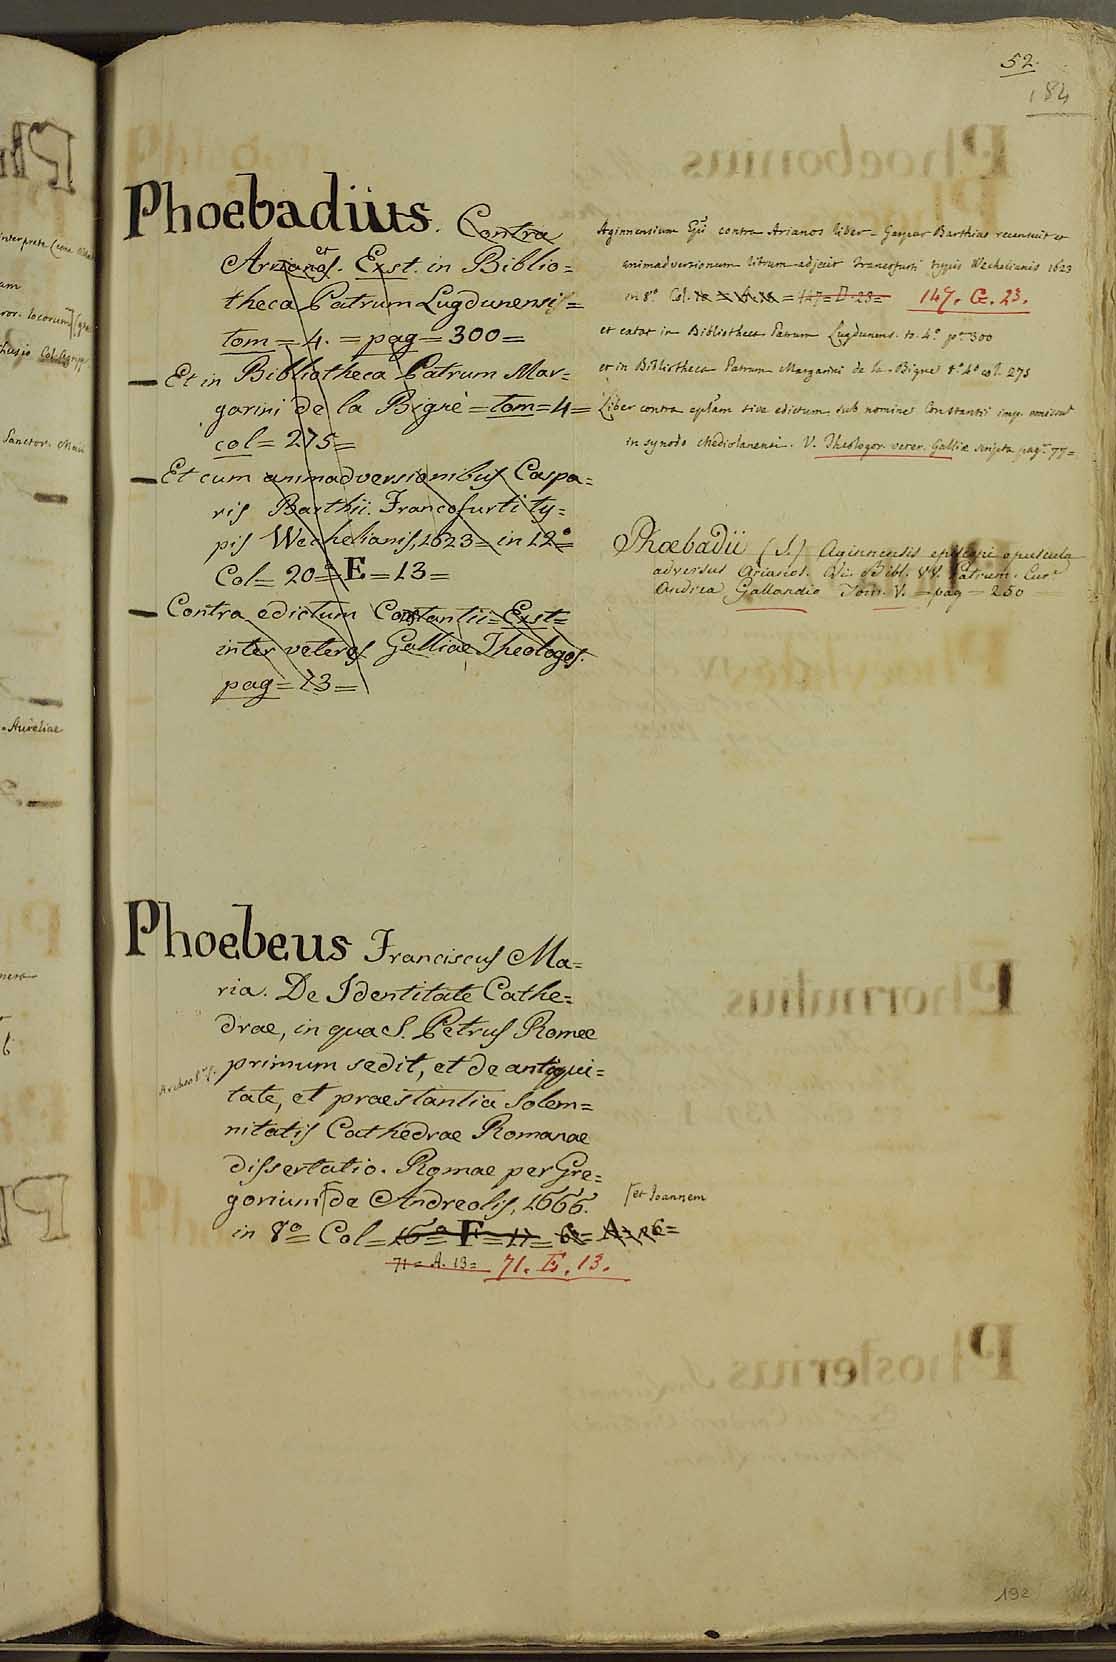 52.
184
Phoebadius. Contra
Arianos. et Exst. in Biblio=
theca Patrum Lugdunensi=
tom = 4. = pag = 300 =
Et in Bibliotheca Patrum Mar=
garini de la Bignè = tom = 4 =
col = 275 =
Et cum animadversionibus Caspa=
ris Barthii. Francofurti ty=
pis Wechelianis, 1623 = in 12º =
Col = 20 = E = 13 =
Contra edictum Constantii = Exst =
inter veteres Galliae Theologos.
pag = 13 =
Aginnensium contra Arianos liber = Gaspar Barthius recensuit et
animadversionum librum adjecit Francofurti typis Wechelianis 1623
in 8º Col. = 147 = D. 23 = 147. G. 23.
et extat in Bibliotheca Patrum Lugdunens. to. 4º p. 300
et in Bibliotheca Patrum Margarini de la Bigne tº 4º col. 275
Liber contra sive edictum sub nomine Constantii imp.
in synodo Mediolanensi. V. Theologor. veter. Galliæ scripta pag. 77 =
Phœbadii (S.) Aginnensis episcopi opuscula
adversus Arianos. In Bibl. VV. Patrum. Cur.
Andrea Gallandio Tom. V. = pag = 250
Phoebeus Franciscus Ma=
ria. De Identitate Cathe=
drae, in qua S. Petrus Romae
primum sedit, et de antiqui=
tate, et praestantia Solem=
nitatis Cathedrae Romanae
dissertatio. Romae per Gre=
gorium de Andreolis, 1666. et Joannem
in 8º = Col = 16 = F = 11 = = A = 6 =
71 = A. 13 = 71. E. 13.
192